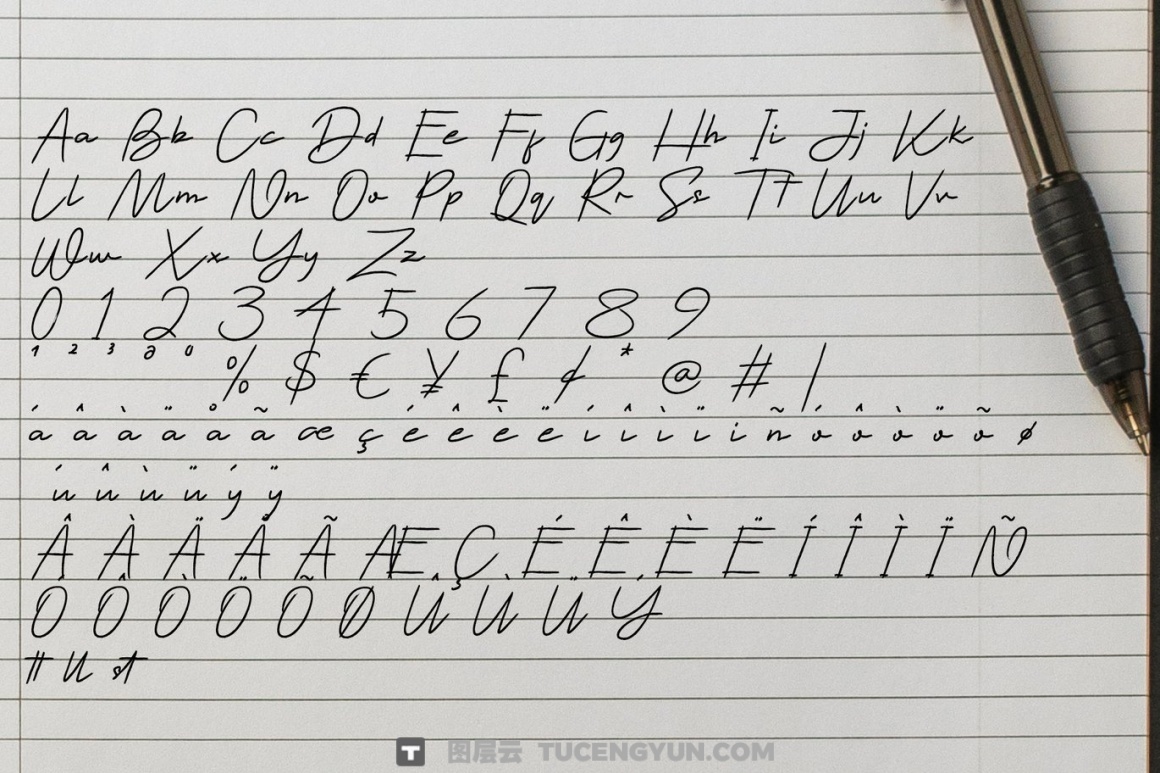 Aa Bb Cc Dd Ee Ff Gg Hh Ii Jj Kk
Ll Mm Nn Oo Pp Qq Rr Ss Tt Uu Vv
Ww Xx Yy Zz
0 1 2 3 4 5 6 7 8 9
¹ ² ³ ª º % $ € ¥ £ ¢ * @ # /
á â à ä å ã æ ç é ê è ë í î ì ï i ñ ó ô ò ö õ ø
ú û ù ü ý ÿ
Â À Ä Å Ã Æ Ç É Ê È Ë Í Î Ì Ï Ñ
Ó Ô Ò Ö Õ Ø Û Ù Ü Ý
tt ll st
图层云 TUCENGYUN.COM